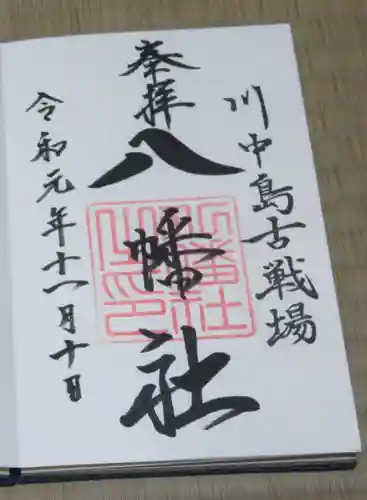 川中島古戦場
奉拝
八幡社
八幡社之印
令和元年十一月十日